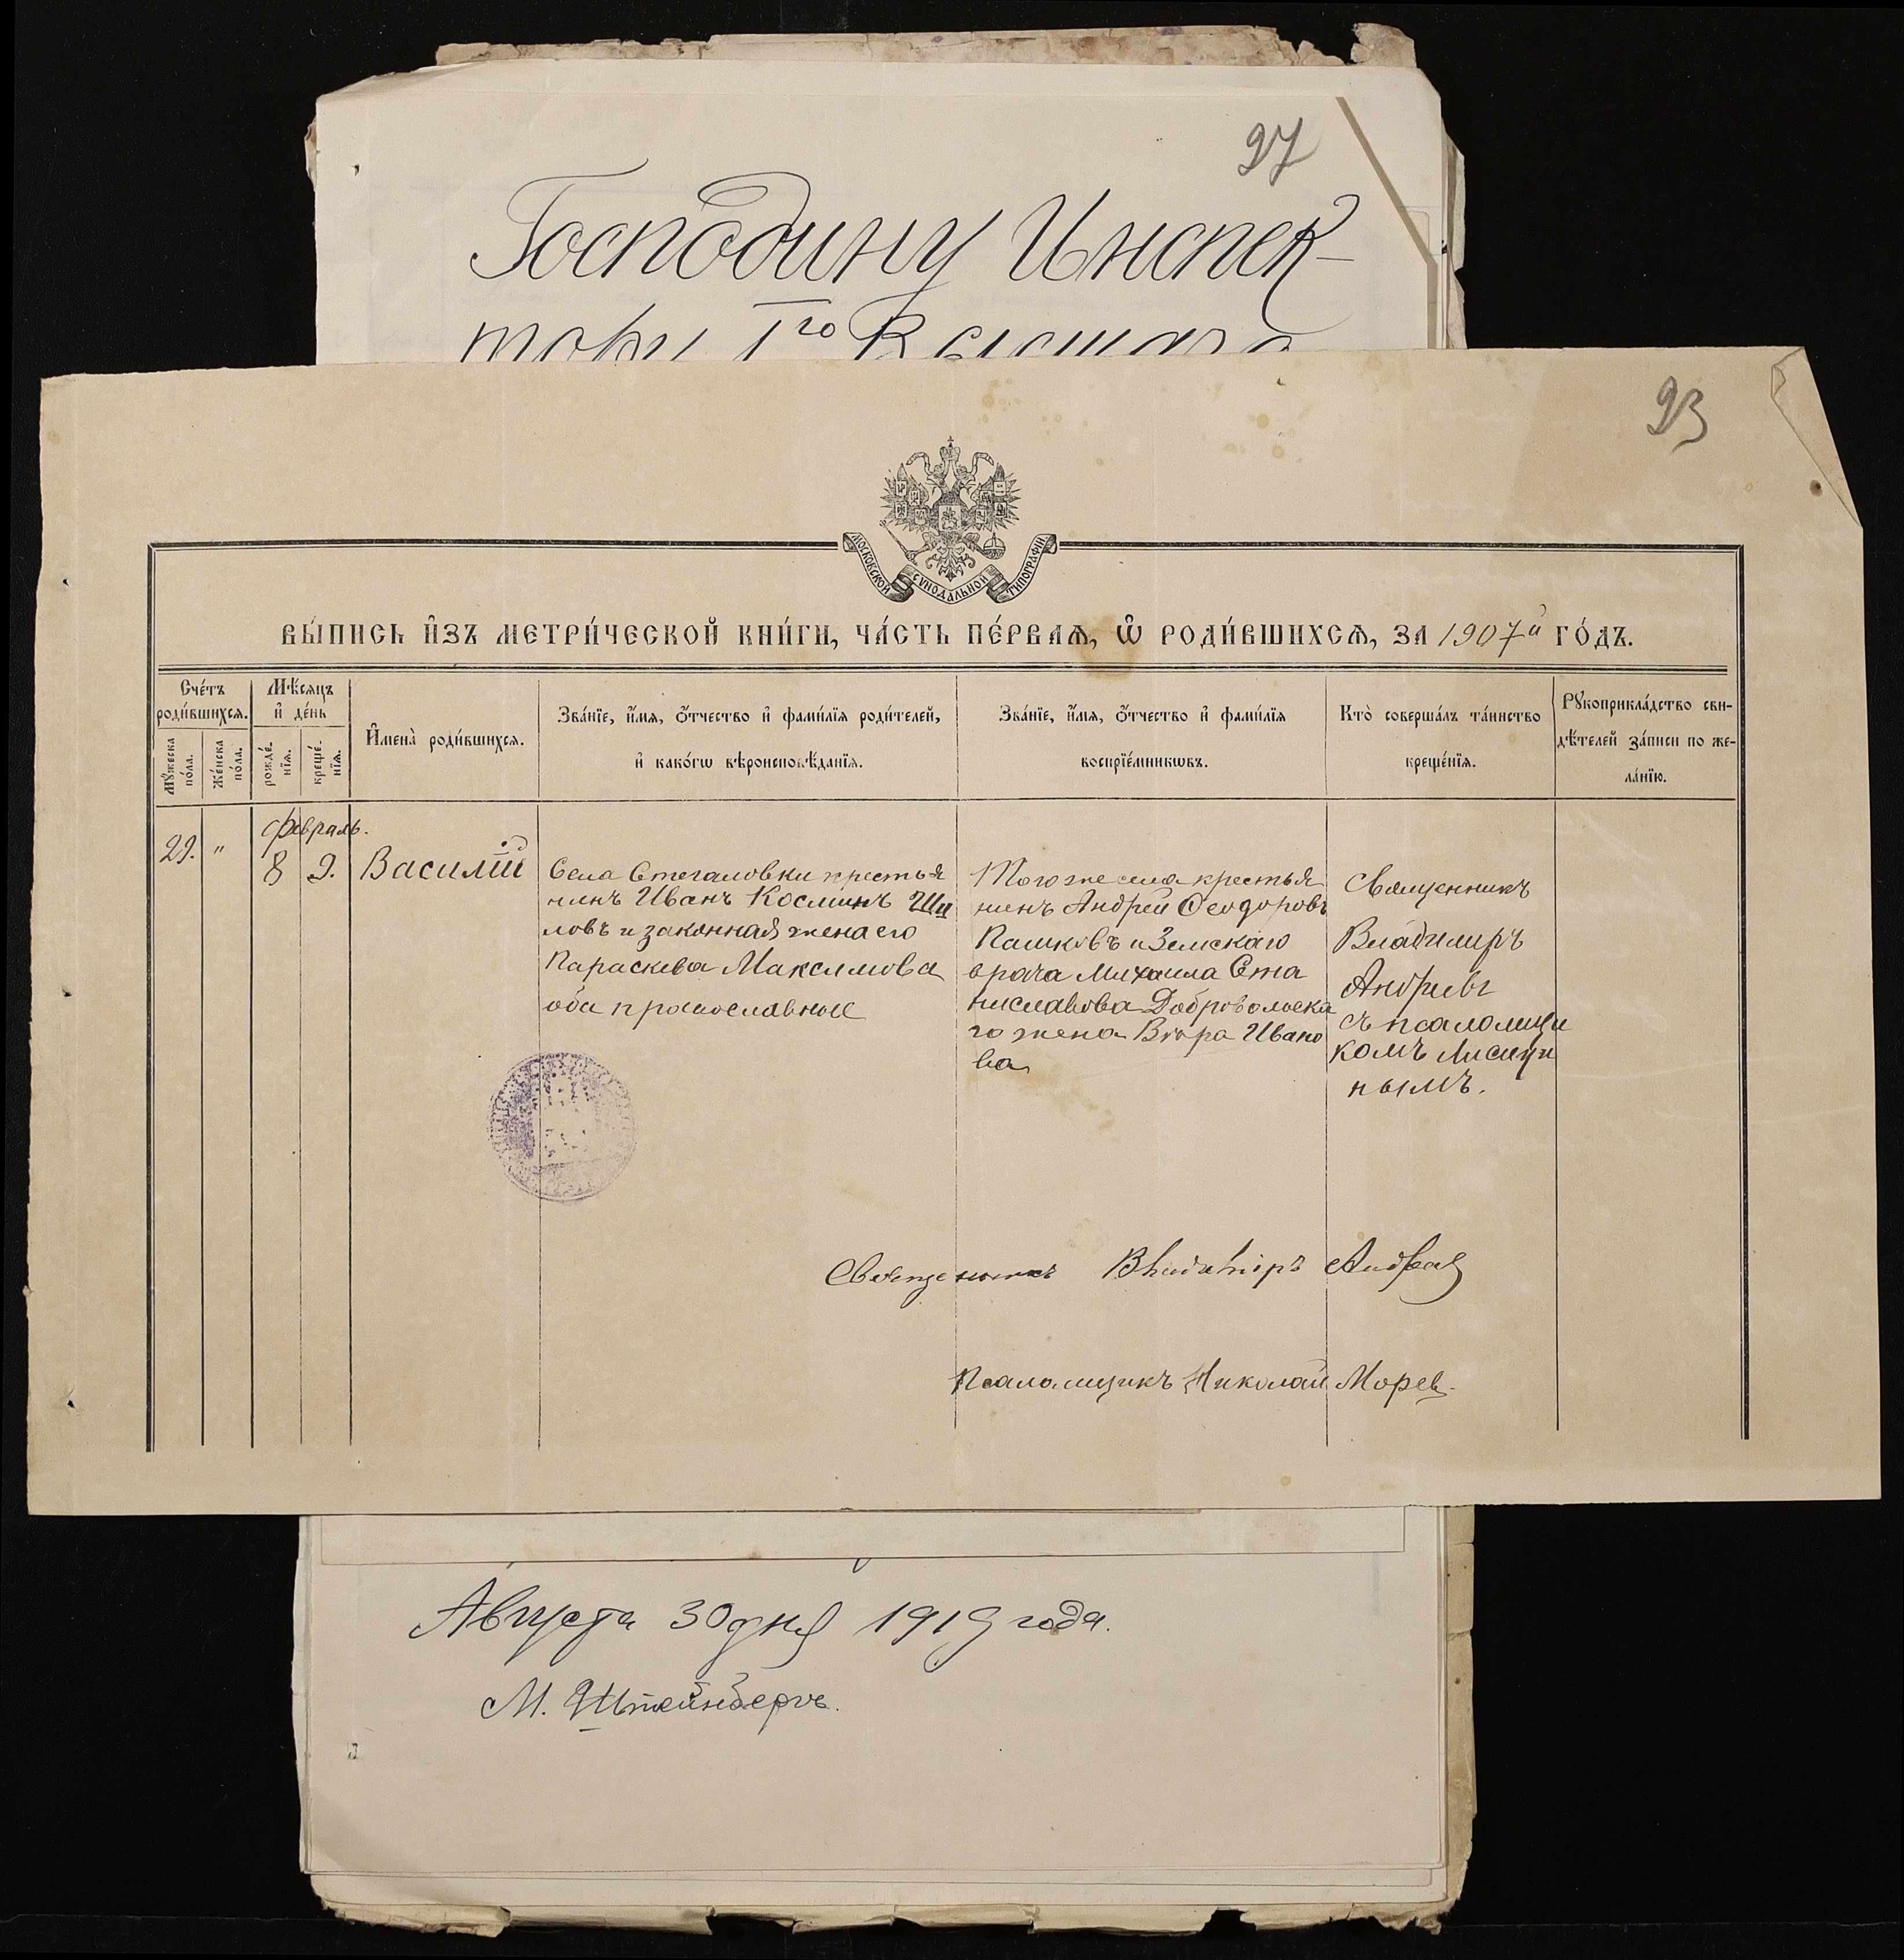 27
Господину Инспек-
тору 1го Высшаго
23
МОСКОВСКОЙ СѴНОДАЛЬНОЙ ТИПОГРАФІИ
ВЫ́ПИСЬ И҆ЗЪ МЕТРИ́ЧЕСКОЙ КНИ́ГИ, ЧА́СТЬ ПЕ́РВАѦ, Ѽ РОДИ́ВШИХСѦ, ЗА 1907й ГО́ДЪ.
Сче́тъ
роди́вшихсѧ.
Мꙋ́жеска
по́ла.
Же́нска
по́ла.
Мѣ́сѧцъ
и҆ де́нь
рожде́-
нїѧ.
креще́-
нїѧ.
И҆мена̀ роди́вшихсѧ.
Зва́нїе, и҆́мѧ, ѻ҆́тчество и҆ фами́лїѧ роди́телей,
и҆ како́гѡ вѣроисповѣ́данїѧ.
Зва́нїе, и҆́мѧ, ѻ҆́тчество и҆ фами́лїѧ
воспрїе́мникѡвъ.
Кто̀ соверша́лъ та́инство
креще́нїѧ.
Рꙋкоприкла́дство сви-
дѣ́телей за́писи по же-
ла́нїю.
29.
"
Февраль.
8
9.
Василій
Села Стегаловки крестья
нинъ Иванъ Косминъ Ши
ловъ и законная жена его
Параскева Максимова
оба православные
Того же села крестья
нинъ Андрей Ѳеодоровъ
Пашковъ и Земскаго
врача Михаила Ста
ниславова Добровольска
го жена Вѣра Ивано
ва
Священникъ
Владимиръ
Андреевъ
съ псаломщи
комъ Лисицы
нымъ.
Священникъ Владиміръ Андреев
Псаломщикъ Николай Морев.
Августа 30 дня 1919 года.
М. Штейнбергъ.